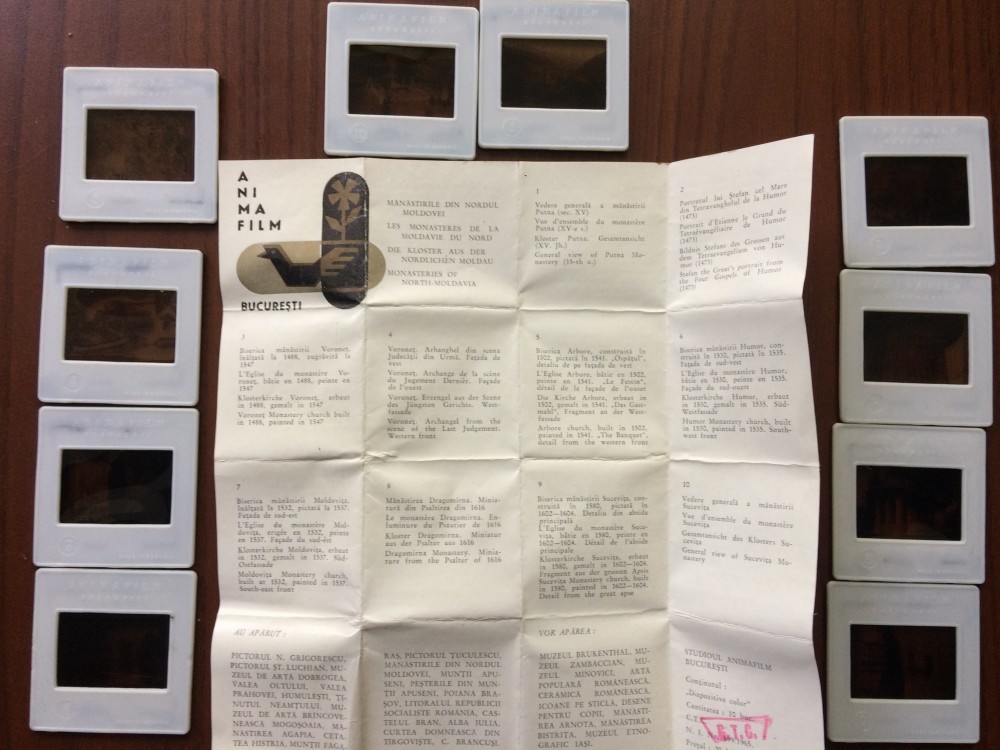 A
NI
MA
FILM
BUCUREȘTI
MANĂSTIRILE DIN NORDUL
MOLDOVEI
LES MONASTERES DE LA
MOLDAVIE DU NORD
DIE KLOSTER AUS DER
NORDLICHEN MOLDAU
MONASTERIES OF
NORTH-MOLDAVIA
1
Vedere generală a mănăstirii
Putna (sec. XV)
Vue d'ensemble du monastère
Putna (XV-e s.)
Kloster Putna. Gesamtansicht
(XV. Jh.)
General view of Putna Mo-
nastery (15-th c.)
2
Portretul lui Ștefan cel Mare
din Tetravangholul de la Humor
(1473)
Portrait d'Etienne le Grand du
Tetraévangéliaire de Humor
(1473)
Bildnis Stefans des Grossen aus
dem Tetraevangelium von Hu-
mor (1473)
Stefan the Great's portrait from
the Four Gospels of Humor
(1473)
3
Biserica mănăstirii Voroneț.
Înălțată la 1488, zugrăvită la
1547
L'Eglise du monastère Vo-
roneț, bâtie en 1488, peinte en
1547
Klosterkirche Voroneț, erbaut
in 1488, gemalt in 1547
Voroneț Monastery church built
in 1488, painted in 1547
4
Voroneț. Arhanghel din scena
Judecății din Urmă. Fațada de
vest
Voroneț. Archange de la scène
du Jugement Dernier. Façade
de l'ouest
Voroneț. Erzengel aus der Scene
des Jüngsten Gerichts. West-
fassade
Voroneț. Archangel from the
scene of the Last Judgement.
Western front
5
Biserica Arbore, construită în
1502, pictată în 1541. „Ospățul",
detaliu de pe fațada de vest
L'Eglise Arbore, bâtie en 1502,
peinte en 1541. „Le Festin",
détail de la façade de l'ouest
Die Kirche Arbore, erbaut in
1502, gemalt in 1541. „Das Gast-
mahl", Fragment an der West-
fassade
Arbore church, built in 1502,
painted in 1541. „The Banquet",
detail from the western front
6
Biserica mănăstirii Humor, con-
struită în 1530, pictată în 1535.
Fațada de sud-vest
L'Eglise du monastère Humor,
bâtie en 1530, peinte en 1535.
Façade du sud-ouest
Klosterkirche Humor, erbaut
in 1530, gemalt in 1535. Süd-
Westfassade
Humor Monastery church, built
in 1530, painted in 1535. South-
west front
7
Biserica mănăstirii Moldovița,
înălțată în 1532, pictată în 1537.
Fațada de sud-est
L'Eglise du monastère Mol-
dovița, erigée en 1532, peinte
en 1537. Façade du sud-est
Klosterkirche Moldovița, erbaut
in 1532, gemalt in 1537. Süd-
Ostfassade
Moldovița Monastery church,
built at 1532, painted in 1537.
South-east front
8
Mănăstirea Dragomirna. Minia-
tură din Psaltirea din 1616
Le monastère Dragomirna. En-
luminure du Psautier de 1616
Kloster Dragomirna. Miniatur
aus der Psalter aus 1616
Dragomirna Monastery. Minia-
ture from the Psalter of 1616
9
Biserica mănăstirii Sucevița, con-
struită în 1580, pictată în
1602—1604. Detaliu din absida
principală
L'Eglise du monastère Suce-
vița, bâtie en 1580, peinte en
1602—1604. Détail de l'abside
principale
Klosterkirche Sucevița, erbaut
in 1580, gemalt in 1602—1604.
Fragment aus der grossen Apsis
Sucevița Monastery church, built
in 1580, painted in 1602—1604.
Detail from the great apse
10
Vedere generală a mănăstirii
Sucevița
Vue d'ensemble du monastère
Sucevița
Gesamtansicht des Klosters Su-
cevița
General view of Sucevița Mo-
nastery
AU APĂRUT :
PICTORUL N. GRIGORESCU,
PICTORUL ȘT. LUCHIAN, MU-
ZEUL DE ARTA DOBROGEA,
VALEA OLTULUI, VALEA
PRAHOVEI, HUMULEȘTI, ȚI-
NUTUL NEAMȚULUI, MU-
ZEUL DE ARTA BRINCOVE-
NEASCĂ MOGOȘOAIA, MA-
NASTIREA AGAPIA, CETA-
TEA HISTRIA, MUNȚII FAGA
RAȘ, PICTORUL ȚUCULESCU,
MANĂSTIRILE DIN NORDUL
MOLDOVEI, MUNȚII APU-
SENI, PEȘTERILE DIN MUN-
ȚII APUSENI, POIANA BRA-
ȘOV, LITORALUL REPUBLICII
SOCIALISTE ROMÂNIA, CAS-
TELUL BRAN, ALBA IULIA,
CURTEA DOMNEASCA DIN
TIRGOVIȘTE, C. BRANCUȘI.
VOR APĂREA :
MUZEUL BRUKENTHAL, MU-
ZEUL ZAMBACCIAN, MU-
ZEUL MINOVICI, ARTA
POPULARĂ ROMÂNEASCĂ,
CERAMICĂ ROMÂNEASCĂ,
ICOANE PE STICLĂ, DESENE
PENTRU COPII, MÂNĂSTI-
REA ARNOTA, MÂNĂSTIREA
BISTRIȚA, MUZEUL ETNO-
GRAFIC IAȘI.
STUDIOUL ANIMAFILM
BUCUREȘTI
Conținutul :
„Diapozitive color"
Cantitatea : 10 buc.